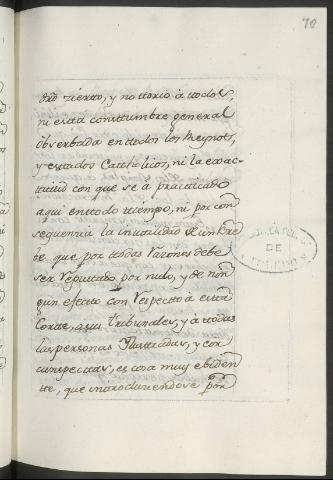 70
ord zierto, y nottorio à ttodos,
ni esta consttumbre general
observbada en ttodos los Reynos,
y esttados Catholicos, ni la exac-
ttitud con que se à practticado
aqui en ttodo tiempo, ni por con
sequencia la inuttilidad de un Bre
be que por ttodas razones debe
ser reputtado por nulo, y de nin
gun efecto con respectto à estta
Cortte, sus Tribunales, y à ttodas
las personas Ilusttradas, y cir
cunspecttas, es cosa muy ebiden
tte, que inttroduciendose por
DE